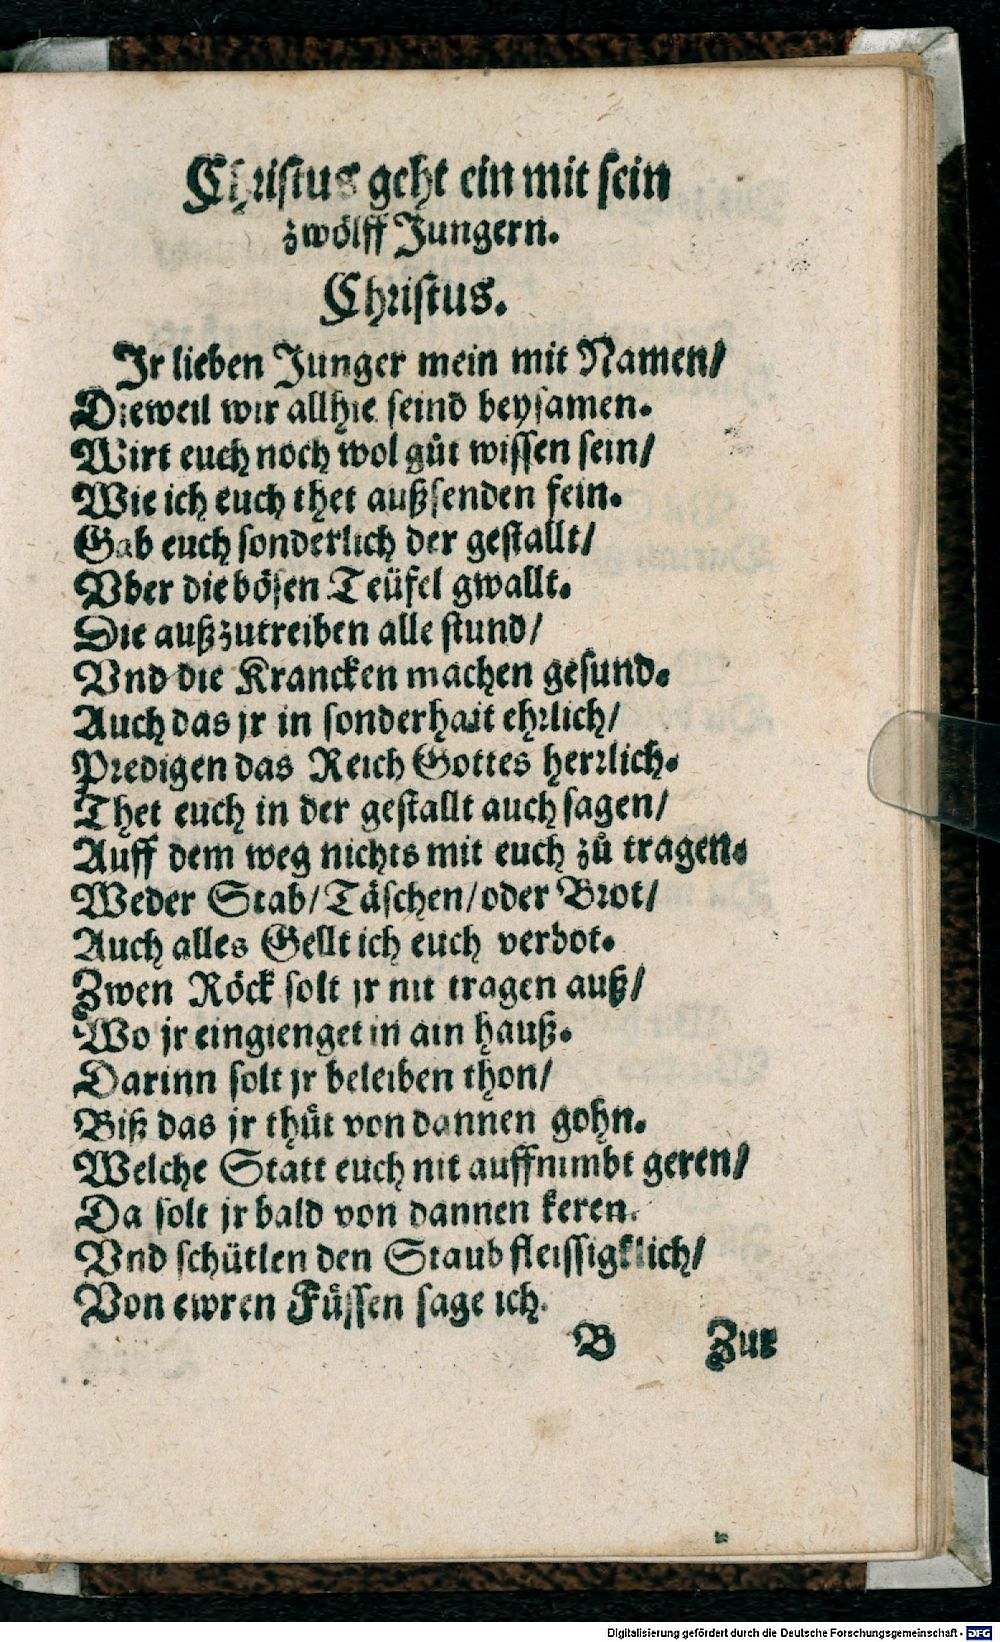 Christus geht ein mit sein
zwölff Jungern.
Christus.
Jr lieben Junger mein mit Namen/
Dieweil wir allhie seind beysamen.
Wirt euch noch wol gůt wissen sein/
Wie ich euch thet außsenden fein.
Gab euch sonderlich der gestallt/
Vber die bösen Teüfel gwallt.
Die außzutreiben alle stund/
Vnd die Krancken machen gesund.
Auch das jr in sonderhait ehrlich/
Predigen das Reich Gottes herrlich.
Thet euch in der gestallt auch sagen/
Auff dem weg nichts mit euch zů tragen.
Weder Stab/Täschen/oder Brot/
Auch alles Gellt ich euch verbot.
Zwen Röck solt jr nit tragen auß/
Wo jr eingienget in ain hauß.
Darinn solt jr beleiben thon/
Biß das jr thůt von dannen gohn.
Welche Statt euch nit auffnimbt geren/
Da solt jr bald von dannen keren.
Vnd schütlen den Staub fleissigklich/
Von ewren Füssen sage ich.
B Zur
Digitalisierung gefördert durch die Deutsche Forschungsgemeinschaft - DFG